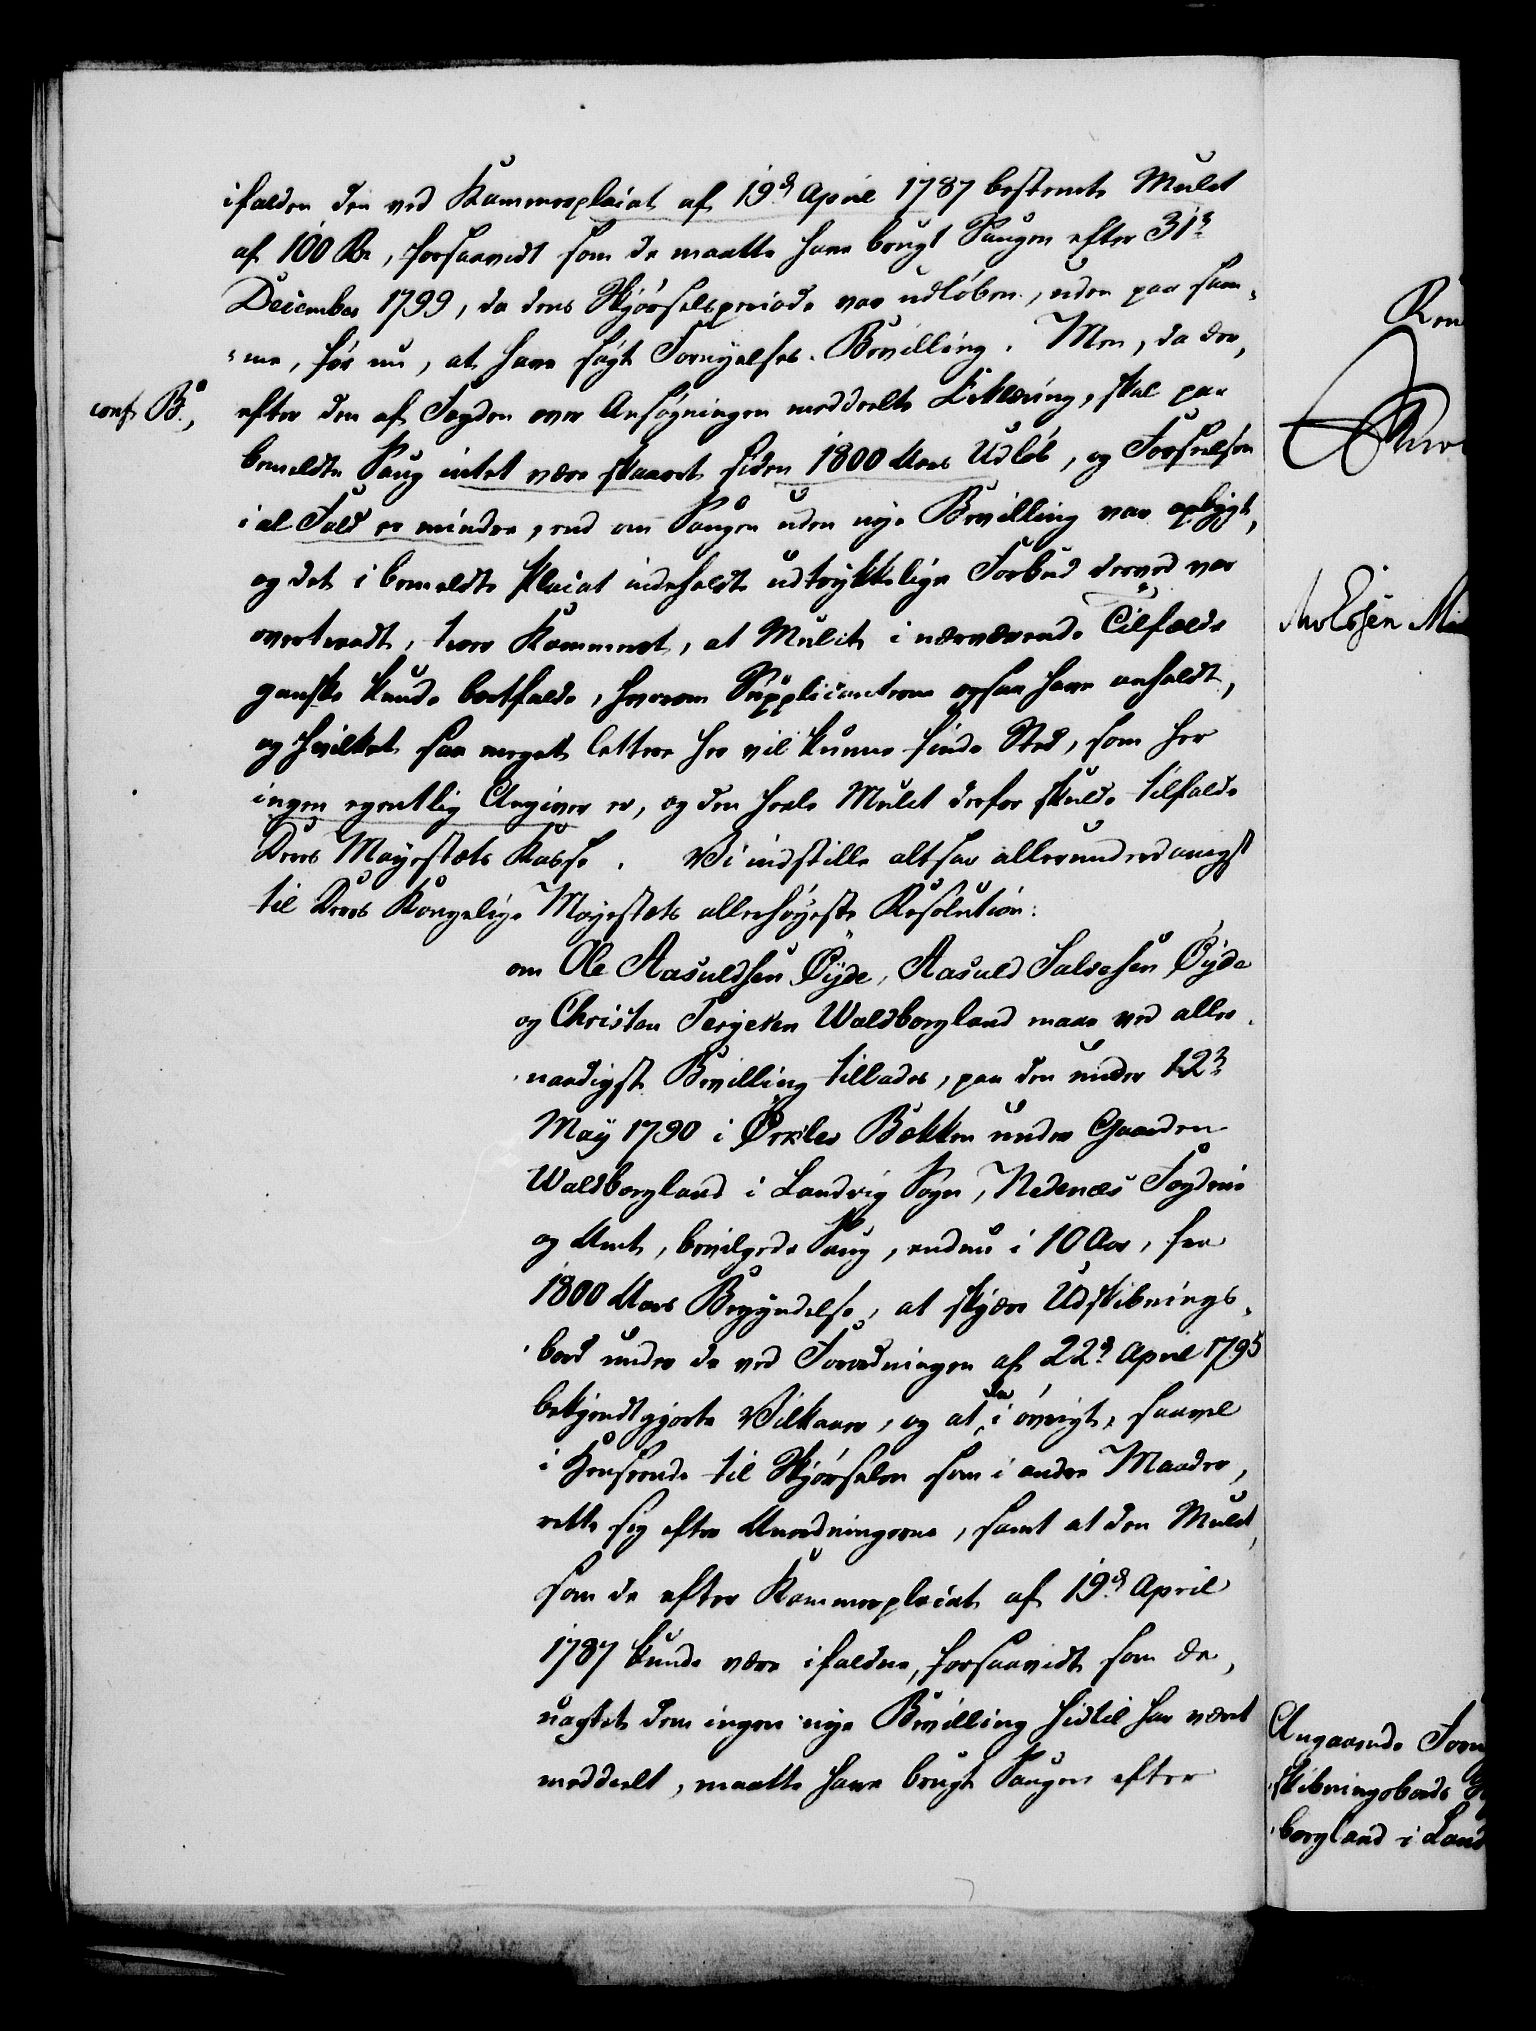 ifalden den ved Kammerplaicat af 19de April 1787 bestemte Mulct
af 100 Rd, forsaavidt som de maatte have brugt Saugen efter 31te
December 1799, da dens Skjørselsperiode var udløben, uden paa sam-
-me, før nu, at have søgt Fornyelses-Bevilling. Men, da der,
conf. B., efter den af Fogden over Ansøgningen meddeelte Erklæring, skal paa
bemeldte Saug intet være skaaret siden 1800 Aars Udløb, og Forseelsen
i al Fald er mindre, end om Saugen uden nye Bevilling var opbygt,
og det i bemeldte Placat indeholdte udtrykkelige Forbud derved var
overtraadt, troer Kammeret, at Mulcten i nærværende Tilfælde
ganske kunde bortfalde, hvorom Supplicanterne ogsaa have anholdt,
og hvilket saa meget lettere her vil kunne finde Sted, som her
ingen egentlig Angiver er, og den heele Mulct derfor skulde tilfalde
Deres Mayestæts Kasse. Vi indstille altsaa allerunderdanigst
til Deres Kongelige Mayestæts allerhøyeste Resolution:
om Ole Aasuldsen Øyde, Aasuld Salvesen Øyde
og Christen Terjesen Waldborgland maae ved aller-
-naadigste Bevilling tillades, paa den under 12te
May 1790 i Bækken under Gaarden
Waldborgland i Landvig Sogn, Nedenæs Fogderie
og Amt, bevilgede Saug, endnu i 10 Aar, fra
1800 Aars Begyndelse, at skjære Udskibnings-
-bord under de ved Forordningen af 22de April 1795
bekjendtgjorte Vilkaar, og at de i øvrigt, saavel
i Henseende til Skjørselen som i andre Maader,
rette sig efter Anordningerne, samt at den Mulct,
som de efter Kammerplacat af 19de April
1787 kunde være ifaldne, forsaavidt som de,
uagtet dem ingen nye Bevilling hidtil har været
meddeelt, maatte have brugt Saugen efter
Ren
Angaaende Forn
skibningsbords
-borgland i Land